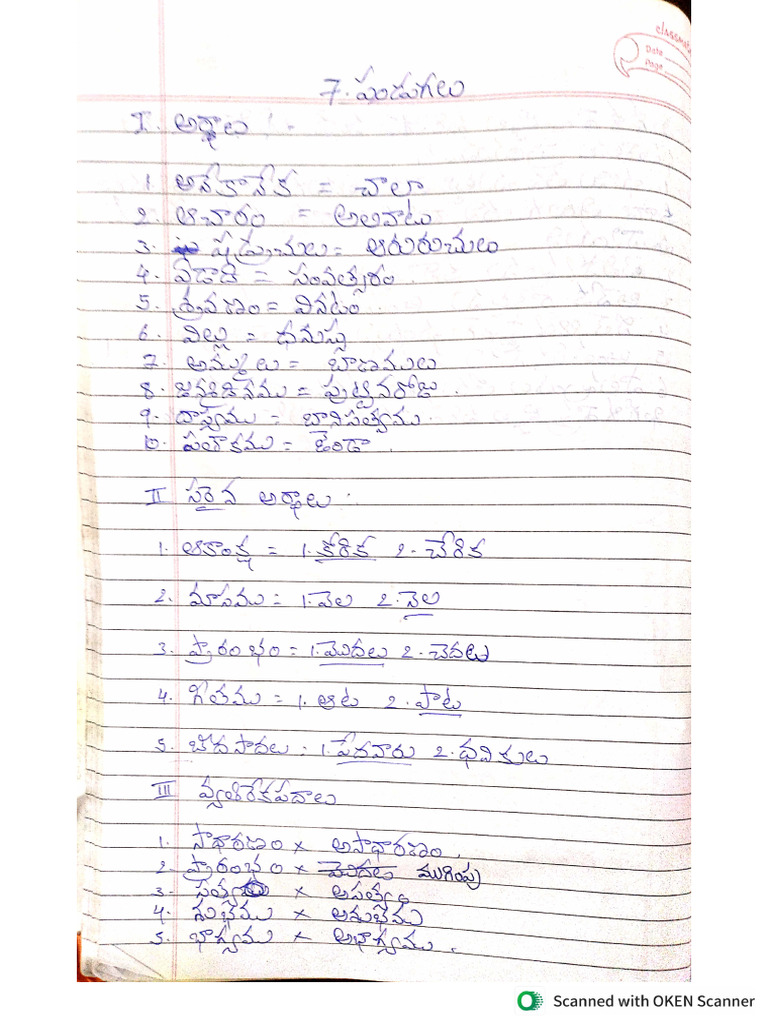 classmate
Date
Page
7. పండుగలు
I. అర్థాలు :-
1. అనేకానేక = చాలా
2. ఆచారం = అలవాటు
3. షడ్రుచులు = ఆరురుచులు
4. ఏడాది = సంవత్సరం.
5. శ్రవణం = వినటం.
6. విల్లు = ధనుస్సు
7. అమ్ములు = బాణములు
8. జన్మదినము = పుట్టినరోజు.
9. దాస్యము = బానిసత్వము.
10. పతాకము = జెండా.
II సరైన అర్థాలు :
1. ఆకాంక్ష = 1. కోరిక 2. చేరిక
2. మాసము = 1. వెల 2. నెల
3. ప్రారంభం = 1. మొదలు 2. చెదలు
4. గీతము = 1. ఆట 2. పాట
5. బీదసాదలు = 1. పేదవారు 2. ధనికులు
III వ్యతిరేకపదాలు
1. సాధారణం × అసాధారణం.
2. ప్రారంభం × ముగింపు
3. సత్యం × అసత్యం
4. శుభము × అశుభము
5. భాగ్యము × అభాగ్యము.
Scanned with OKEN Scanner